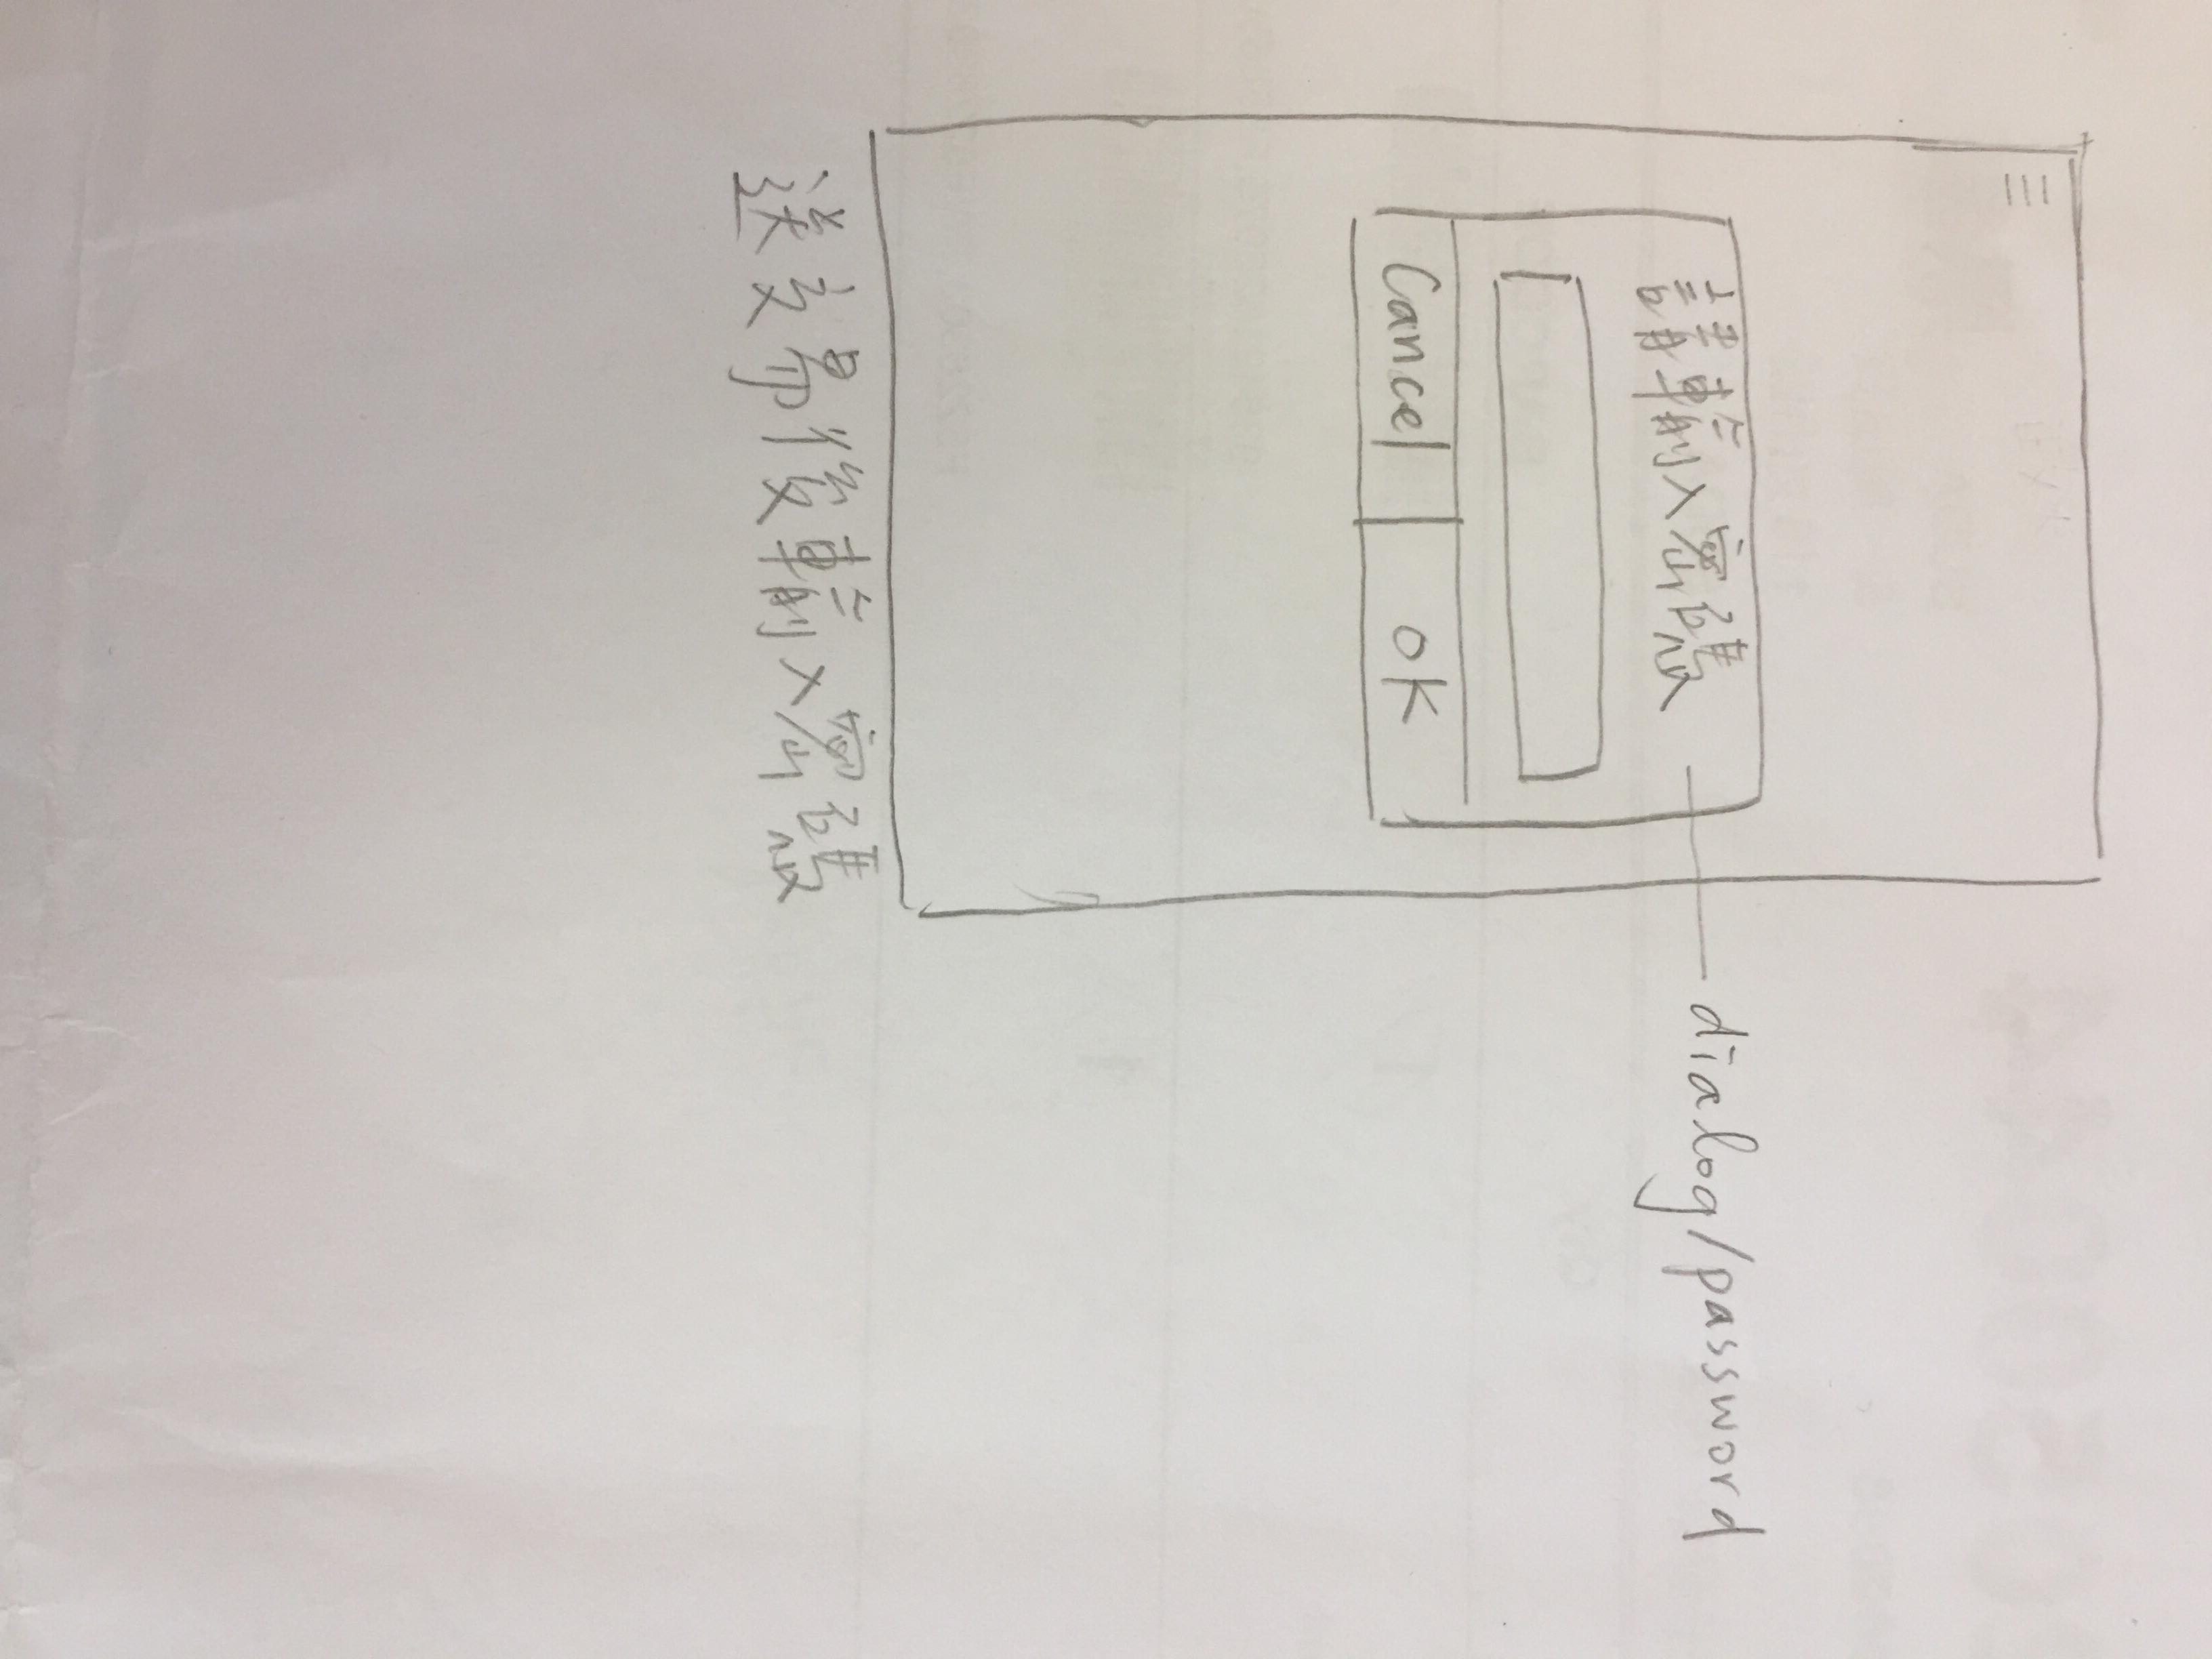 請輸入密碼
dialog/password
Cancel
OK
送交易後輸入密碼